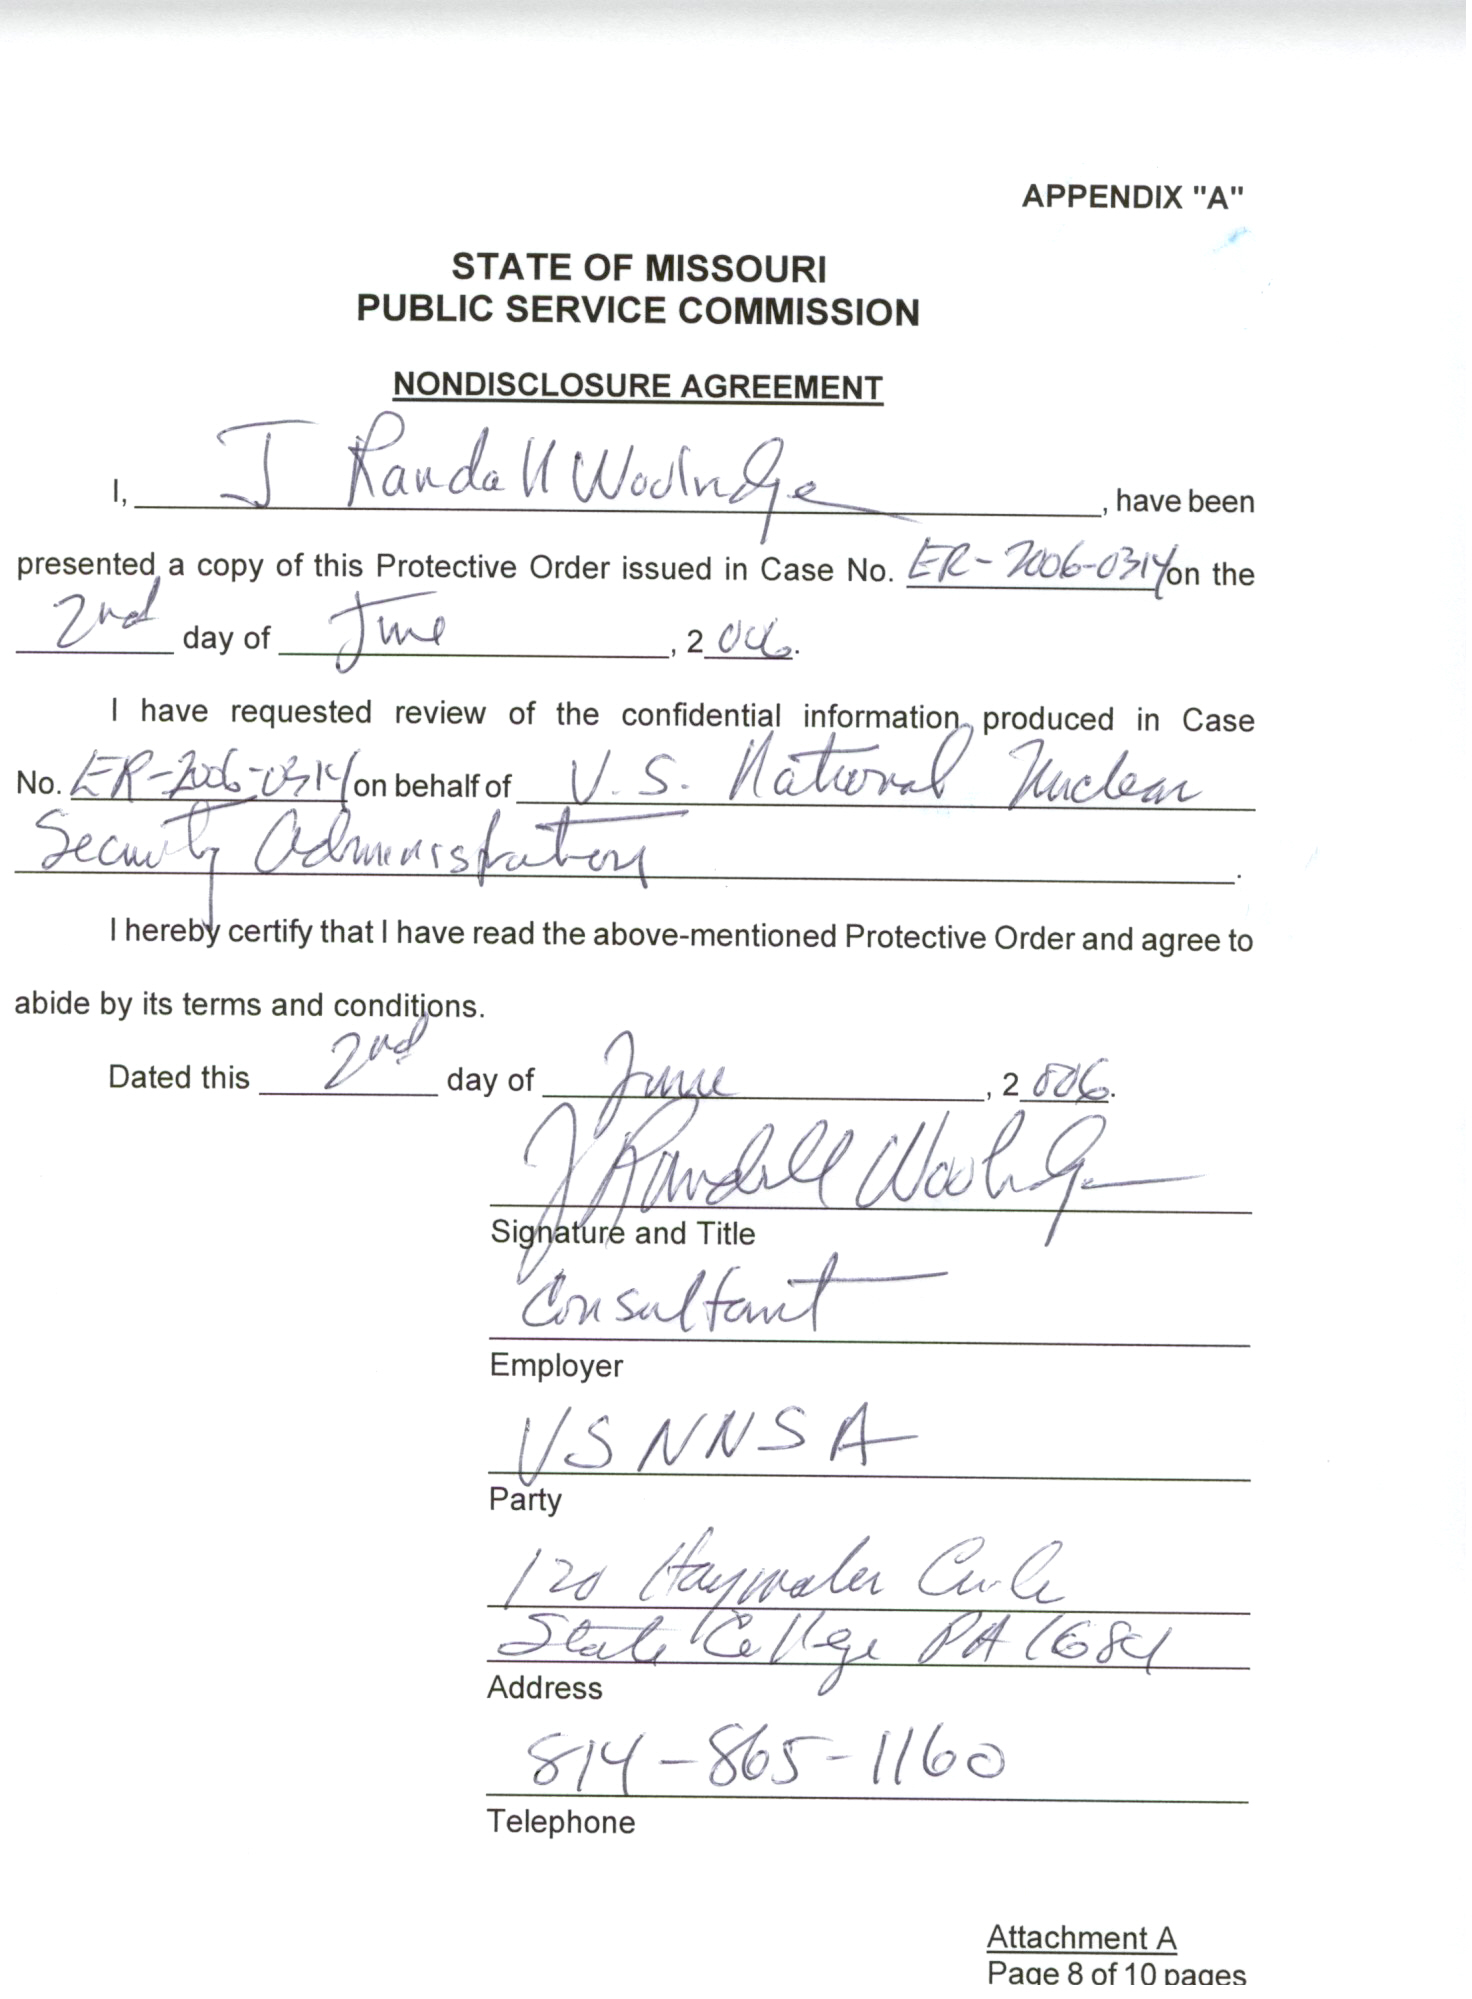 APPENDIX "A"
STATE OF MISSOURI
PUBLIC SERVICE COMMISSION
NONDISCLOSURE AGREEMENT
I, J Randall Woolridge, have been
presented a copy of this Protective Order issued in Case No. ER-2006-0314 on the
2nd day of June, 2006.
I have requested review of the confidential information produced in Case
No. ER-2006-0314 on behalf of U.S. National Nuclear
Security Administration.
I hereby certify that I have read the above-mentioned Protective Order and agree to
abide by its terms and conditions.
Dated this 2nd day of June, 2006.
J Randall Woolridge
Signature and Title
Consultant
Employer
USNNSA
Party
120 Haymaker Circle
State College PA 16801
Address
814-865-1160
Telephone
Attachment A
Page 8 of 10 pages